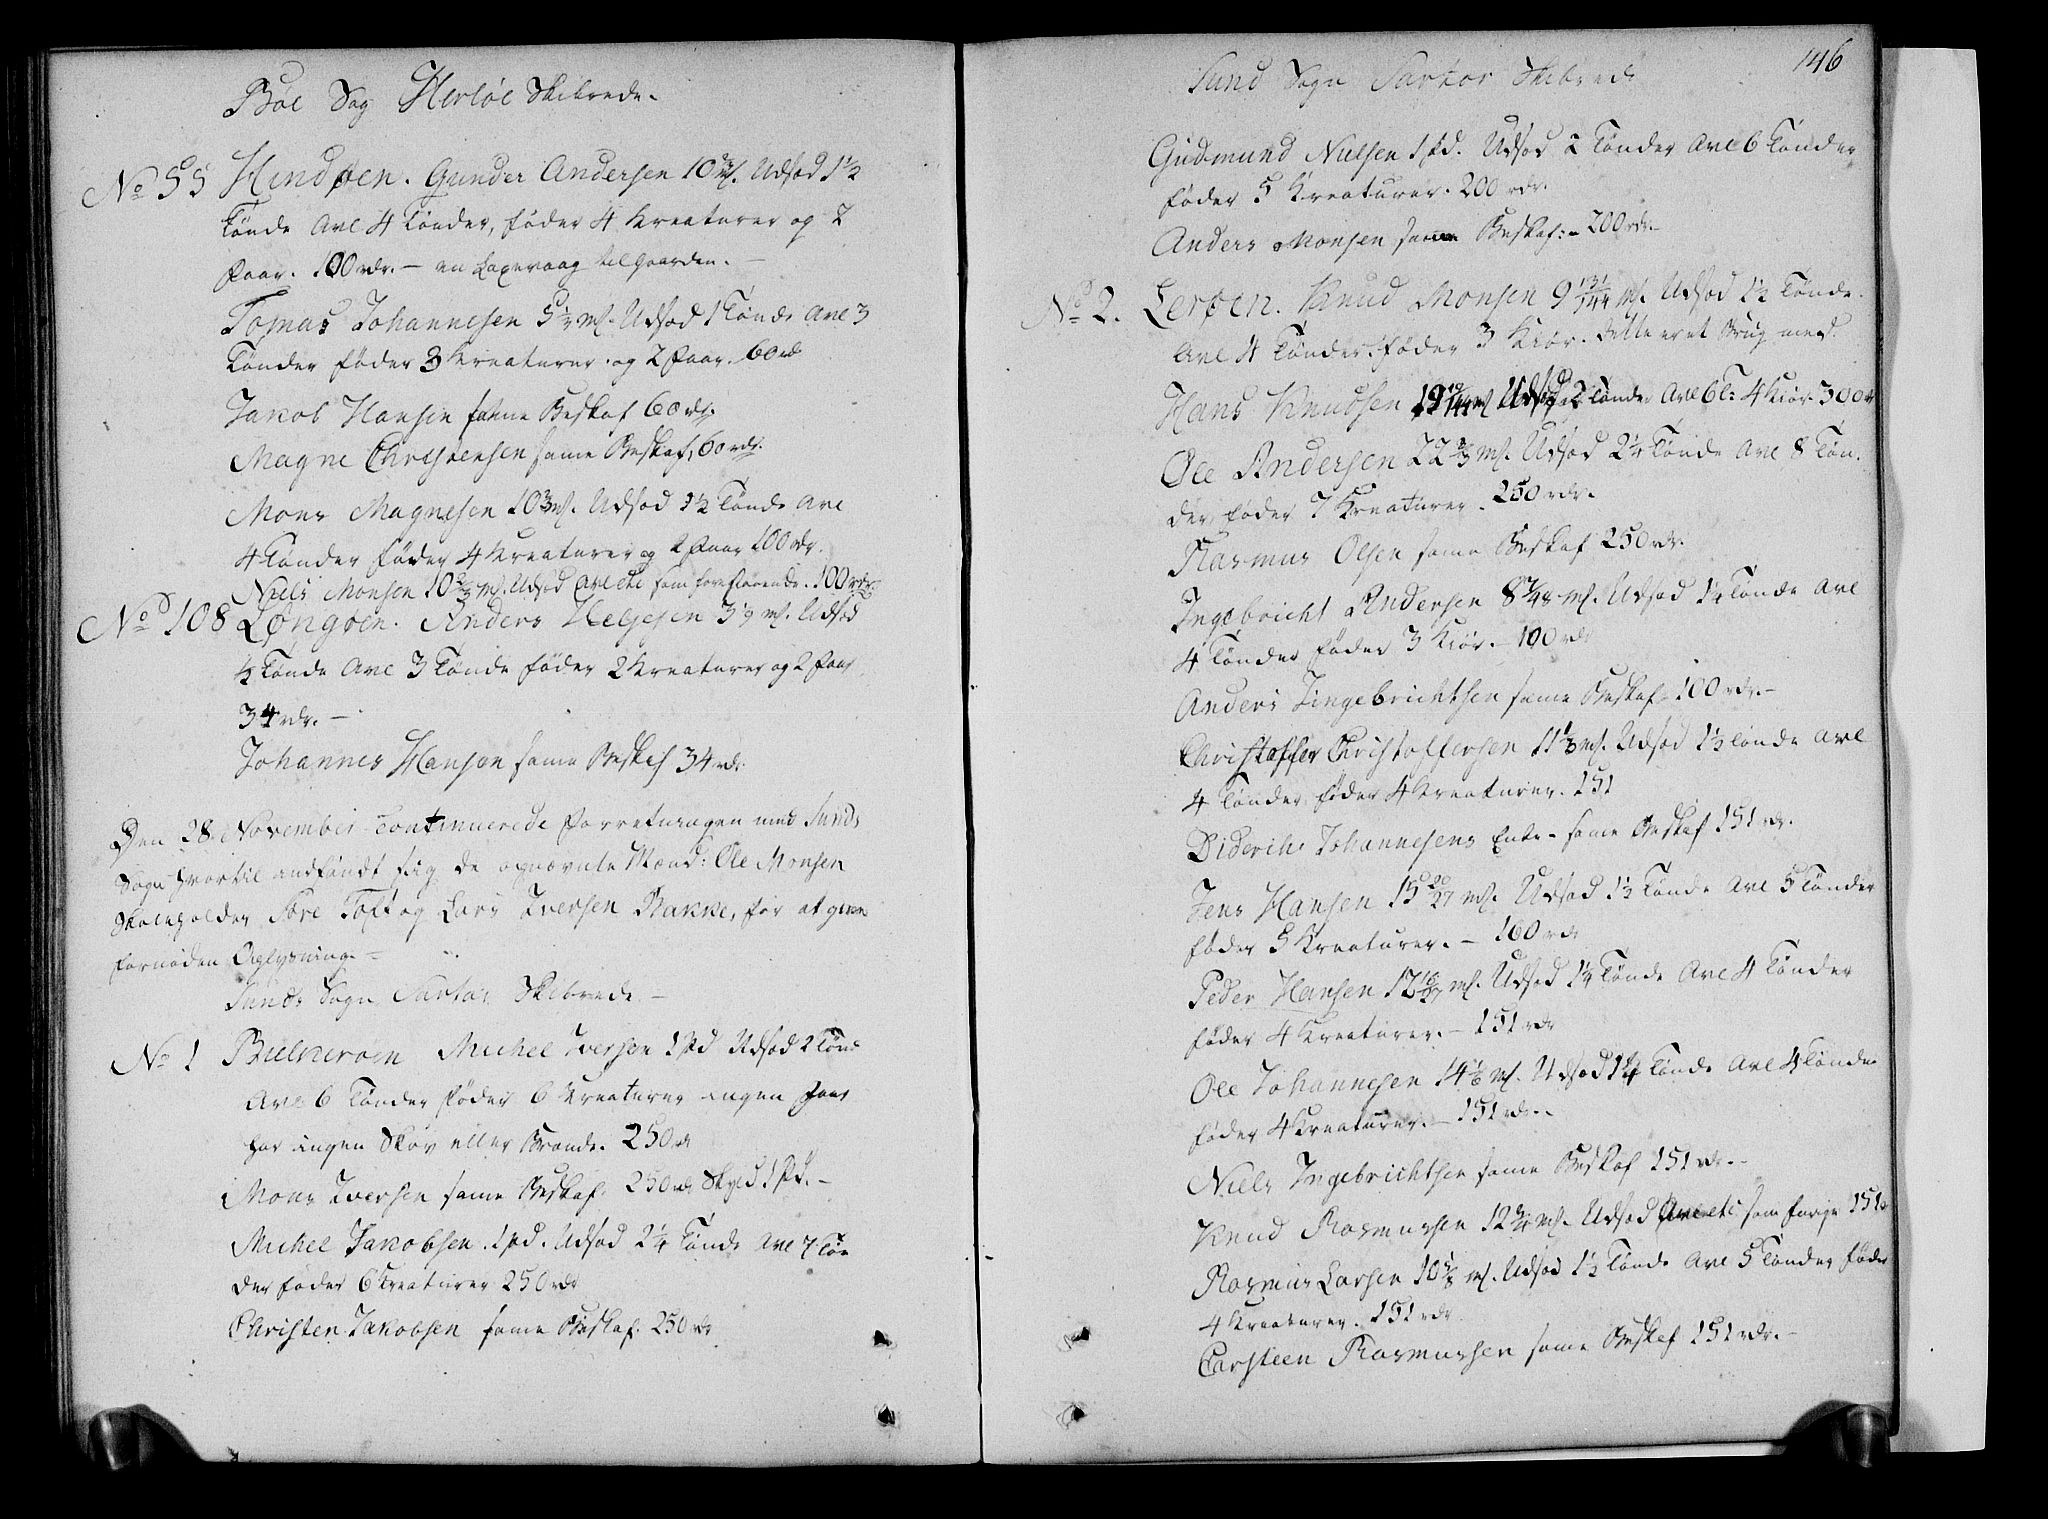 Bøe Sog Herløe Skibrede.
No 55 Hindøen. Gunder Andersen 10 2/3 ml. Udsæd 1 1/2
Tønde Avl 4 Tønder, føder 4 Kreaturer og 2
Faar. 100 rdr. – en Laxevaag til Gaarden. –
Tomas Johannesen 5 1/3 ml. Udsæd 1 Tønde Avl 3
Tønder føder 3 Kreaturer og 2 Faar. 60 rd
Jakob Hansen same Beskaf 60 rdr.
Magne Christensen same Beskaf, 60 rdr.
Mons Magnesen 10 2/3 ml. Udsæd 1 1/2 Tønde Avl
4 Tønder føder 4 Kreaturer og 2 Faar 100 rdr.
Niels Monsen 10 2/3 ml. Udsæd Avl etc som foreståaende. 100 rdr
No 108 Løngøen. Anders Helgesen 3 1/9 ml. Udsæd
1/2 Tønde Avl 3 Tønde føder 2 Kreaturer og 2 Faar
34 rdr. –
Johannes Hansen same Beskaf 34 rdr
Den 28 November continuerede Forretningen med Sunds
Sogn hvortil indfandt sig de opnævnte Mænd: Ole Monsen
Skoleholder Søre Toft og Lars Iversen Bakke, for at give
fornøden Oplysning. –
Sunds Sogn Sartor Skibrede –
No 1 Bielkerøen Michel Iversen 1 Pd Udsæd 2 Tønd
Avl 6 Tønder føder 6 Kreaturer ingen Faar
har ingen Skov eller Brænde. 250 rd
Mons Iversen same Beskaf. 250 rd Skyld 1 Pd. –
Michel Jakobsen 1 pd. Udsæd 2 1/4 Tønde Avl 7 Tøn
der føder 6 Kreaturer 250 rdr
Christen Jakobsen same Beskaf. 250 rdr
146
Sund Sogn Sartor Skibrede
Gudmund Nielsen 1 Pd. Udsæd 2 Tønder Avl 6 Tønder
føder 5 Kreaturer. 200 rdr.
Anders Monsen same Beskaf: – 200 rdr. –
No 2. Lerøen. Knud Monsen 9 131/144 ml. Udsæd 1 1/2 Tønde.
Avl 4 Tønder. føder 3 Kiør. dette er et Brug med
Hans Knudsen Udsæd 2 Tønder Avl 6 T: 4 Kiør 300 r
Ole Andersen 22 2/3 ml. Udsæd 2 1/4 Tønde Avl 8 Tøn.
der føder 7 Kreaturer. 250 rdr.
Rasmus Olsen same Beskaf 250 rdr.
Ingebricht Andersen 8 7/48 ml. Udsæd 1 1/4 Tønde Avl
4 Tønder føder 3 Kiør. – 100 rdr
Anders Iingebrichtsen same Beskaf. 100 rdr. –
Christoffer Christoffersen 11 1/3 ml. Udsæd 1 1/2 Tønde Avl
4 Tønder føder 4 Kreaturer. 151
Diderik Johannesens Enke – same Beskaf 151 rdr.
Jens Hansen 15 20/27 ml. Udsæd 1 1/2 Tønde Avl 5 Tønder
føder 5 Kreaturer. – 160 rdr
Peder Hansen 12 16/27 ml. Udsæd 1 1/4 Tønde Avl 4 Tønder
føder 4 Kreaturer. – 151 rdr
Ole Johannesen 14 1/6 ml. Udsæd 1 1/4 Tønde Avl 4 Tønder
føder 4 Kreaturer. – 151 rdr. –
Niels Ingebrichtsen same Beskaf 151 rdr. –
Knud Rasmussen 12 ml. Udsæd Avl etc som forige 151
Rasmus Larsen 10 ml. Udsæd 1 1/2 Tønde Avl 5 Tønder føder
4 Kreaturer. 151 rdr
Carsteen Rasmussen same Beskaf 151 rdr. –